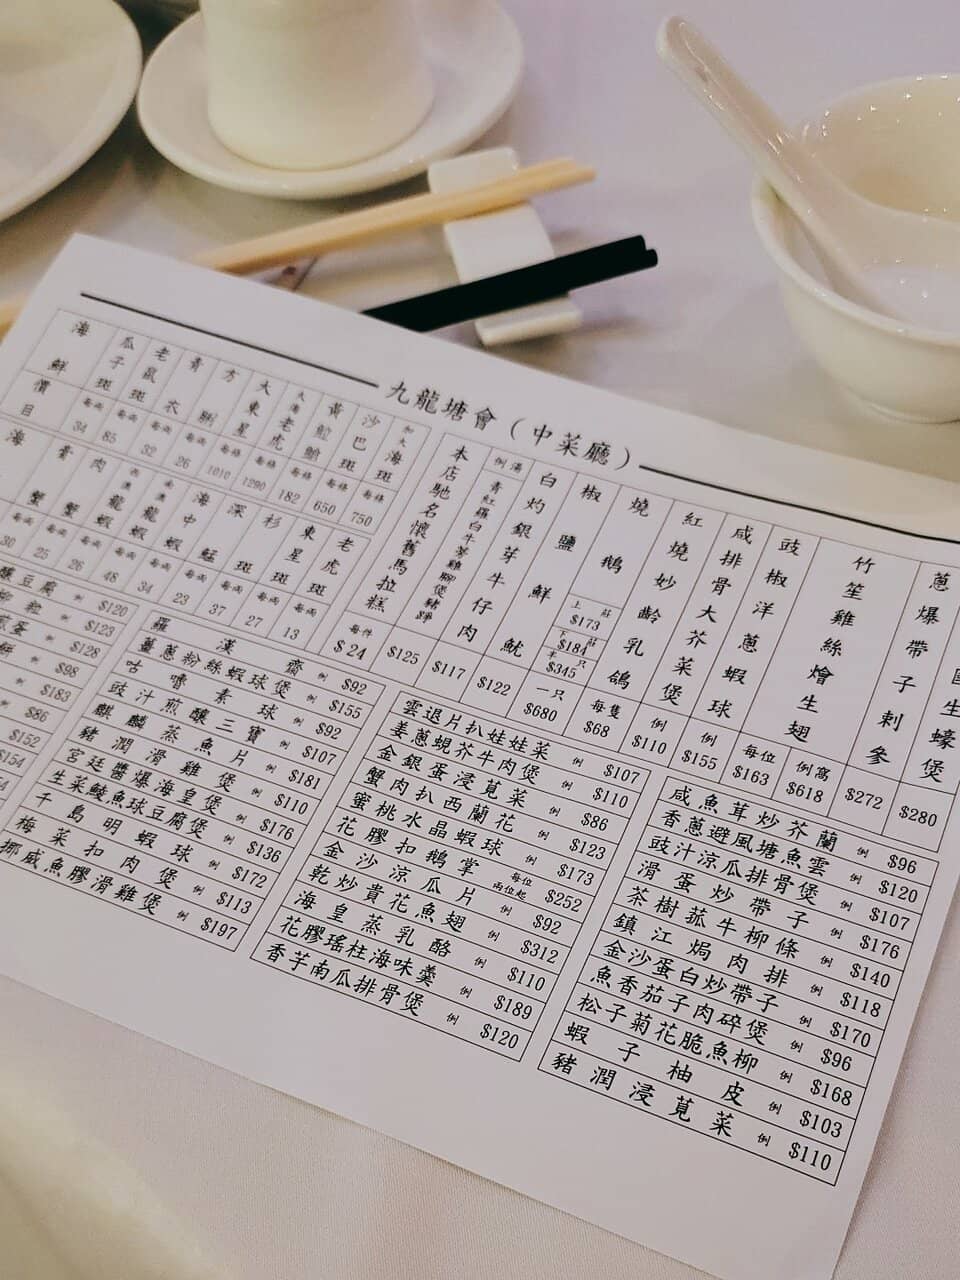 九龍塘會（中菜廳）
海鮮價目
瓜子斑 每兩 34
老鼠斑 每兩 85
青衣 每兩 32
方脷 每兩 26
大東星 每條 1010
大海老虎 每條 1290
黃䱛鱠 每條 182
沙巴斑 每條 650
加大海斑 每條 750
海
膏蟹 每兩 30
肉蟹 每兩 25
西澳龍蝦 每兩 26
南澳龍蝦 每兩 48
海中蝦 每兩 34
深斑 每兩 37
杉斑 每兩 27
東星斑 每兩 13
老虎斑
本店馳名懷舊馬拉糕 每件 $24
例湯 $125
白灼銀芽牛仔肉 $117
椒鹽鮮魷 $122
燒鵝 上莊 $173 下莊 $184 半只 $345 一只 $680
紅燒妙齡乳鴿 每隻 $68
咸排骨大芥菜煲 例 $110
豉椒洋蔥蝦球 例 $155
竹笙雞絲燴生翅 每位 $163 例窩 $618
蔥爆帶子剌參 $272
生蠔煲 $280
釀豆腐 例 $120
$123
蛋 $128
例 $98
例 $183
例 $86
$152
$154
羅漢齋 例 $92
薑蔥粉絲蝦球煲 例 $155
咕嚕素球 例 $92
豉汁煎釀三寶 例 $107
麒麟蒸魚片 例 $181
豬潤滑雞煲 例 $110
宮廷醬爆海皇煲 例 $176
生菜鯪魚球豆腐煲 例 $136
千島明蝦球 例 $172
梅菜扣肉煲 例 $113
挪威魚膠滑雞煲 例 $197
雲退片扒娃娃菜 例 $107
姜蔥蜆芥牛肉煲 例 $110
金銀蛋浸莧菜 例 $86
蟹肉扒西蘭花 例 $123
蜜桃水晶蝦球 例 $173
花膠扣鵝掌 每位 兩位起 $252
金沙涼瓜片 例 $92
乾炒貴花魚翅 例 $312
海皇蒸乳酪 例 $110
花膠瑤柱海味羹 例 $189
香芋南瓜排骨煲 例 $120
咸魚茸炒芥蘭 例 $96
香蔥避風塘魚雲 例 $120
豉汁涼瓜排骨煲 例 $107
滑蛋炒帶子 例 $176
茶樹菰牛柳條 例 $140
鎮江焗肉排 例 $118
金沙蛋白炒帶子 例 $170
魚香茄子肉碎煲 例 $96
松子菊花脆魚柳 例 $168
蝦子柚皮 例 $103
豬潤浸莧菜 例 $110